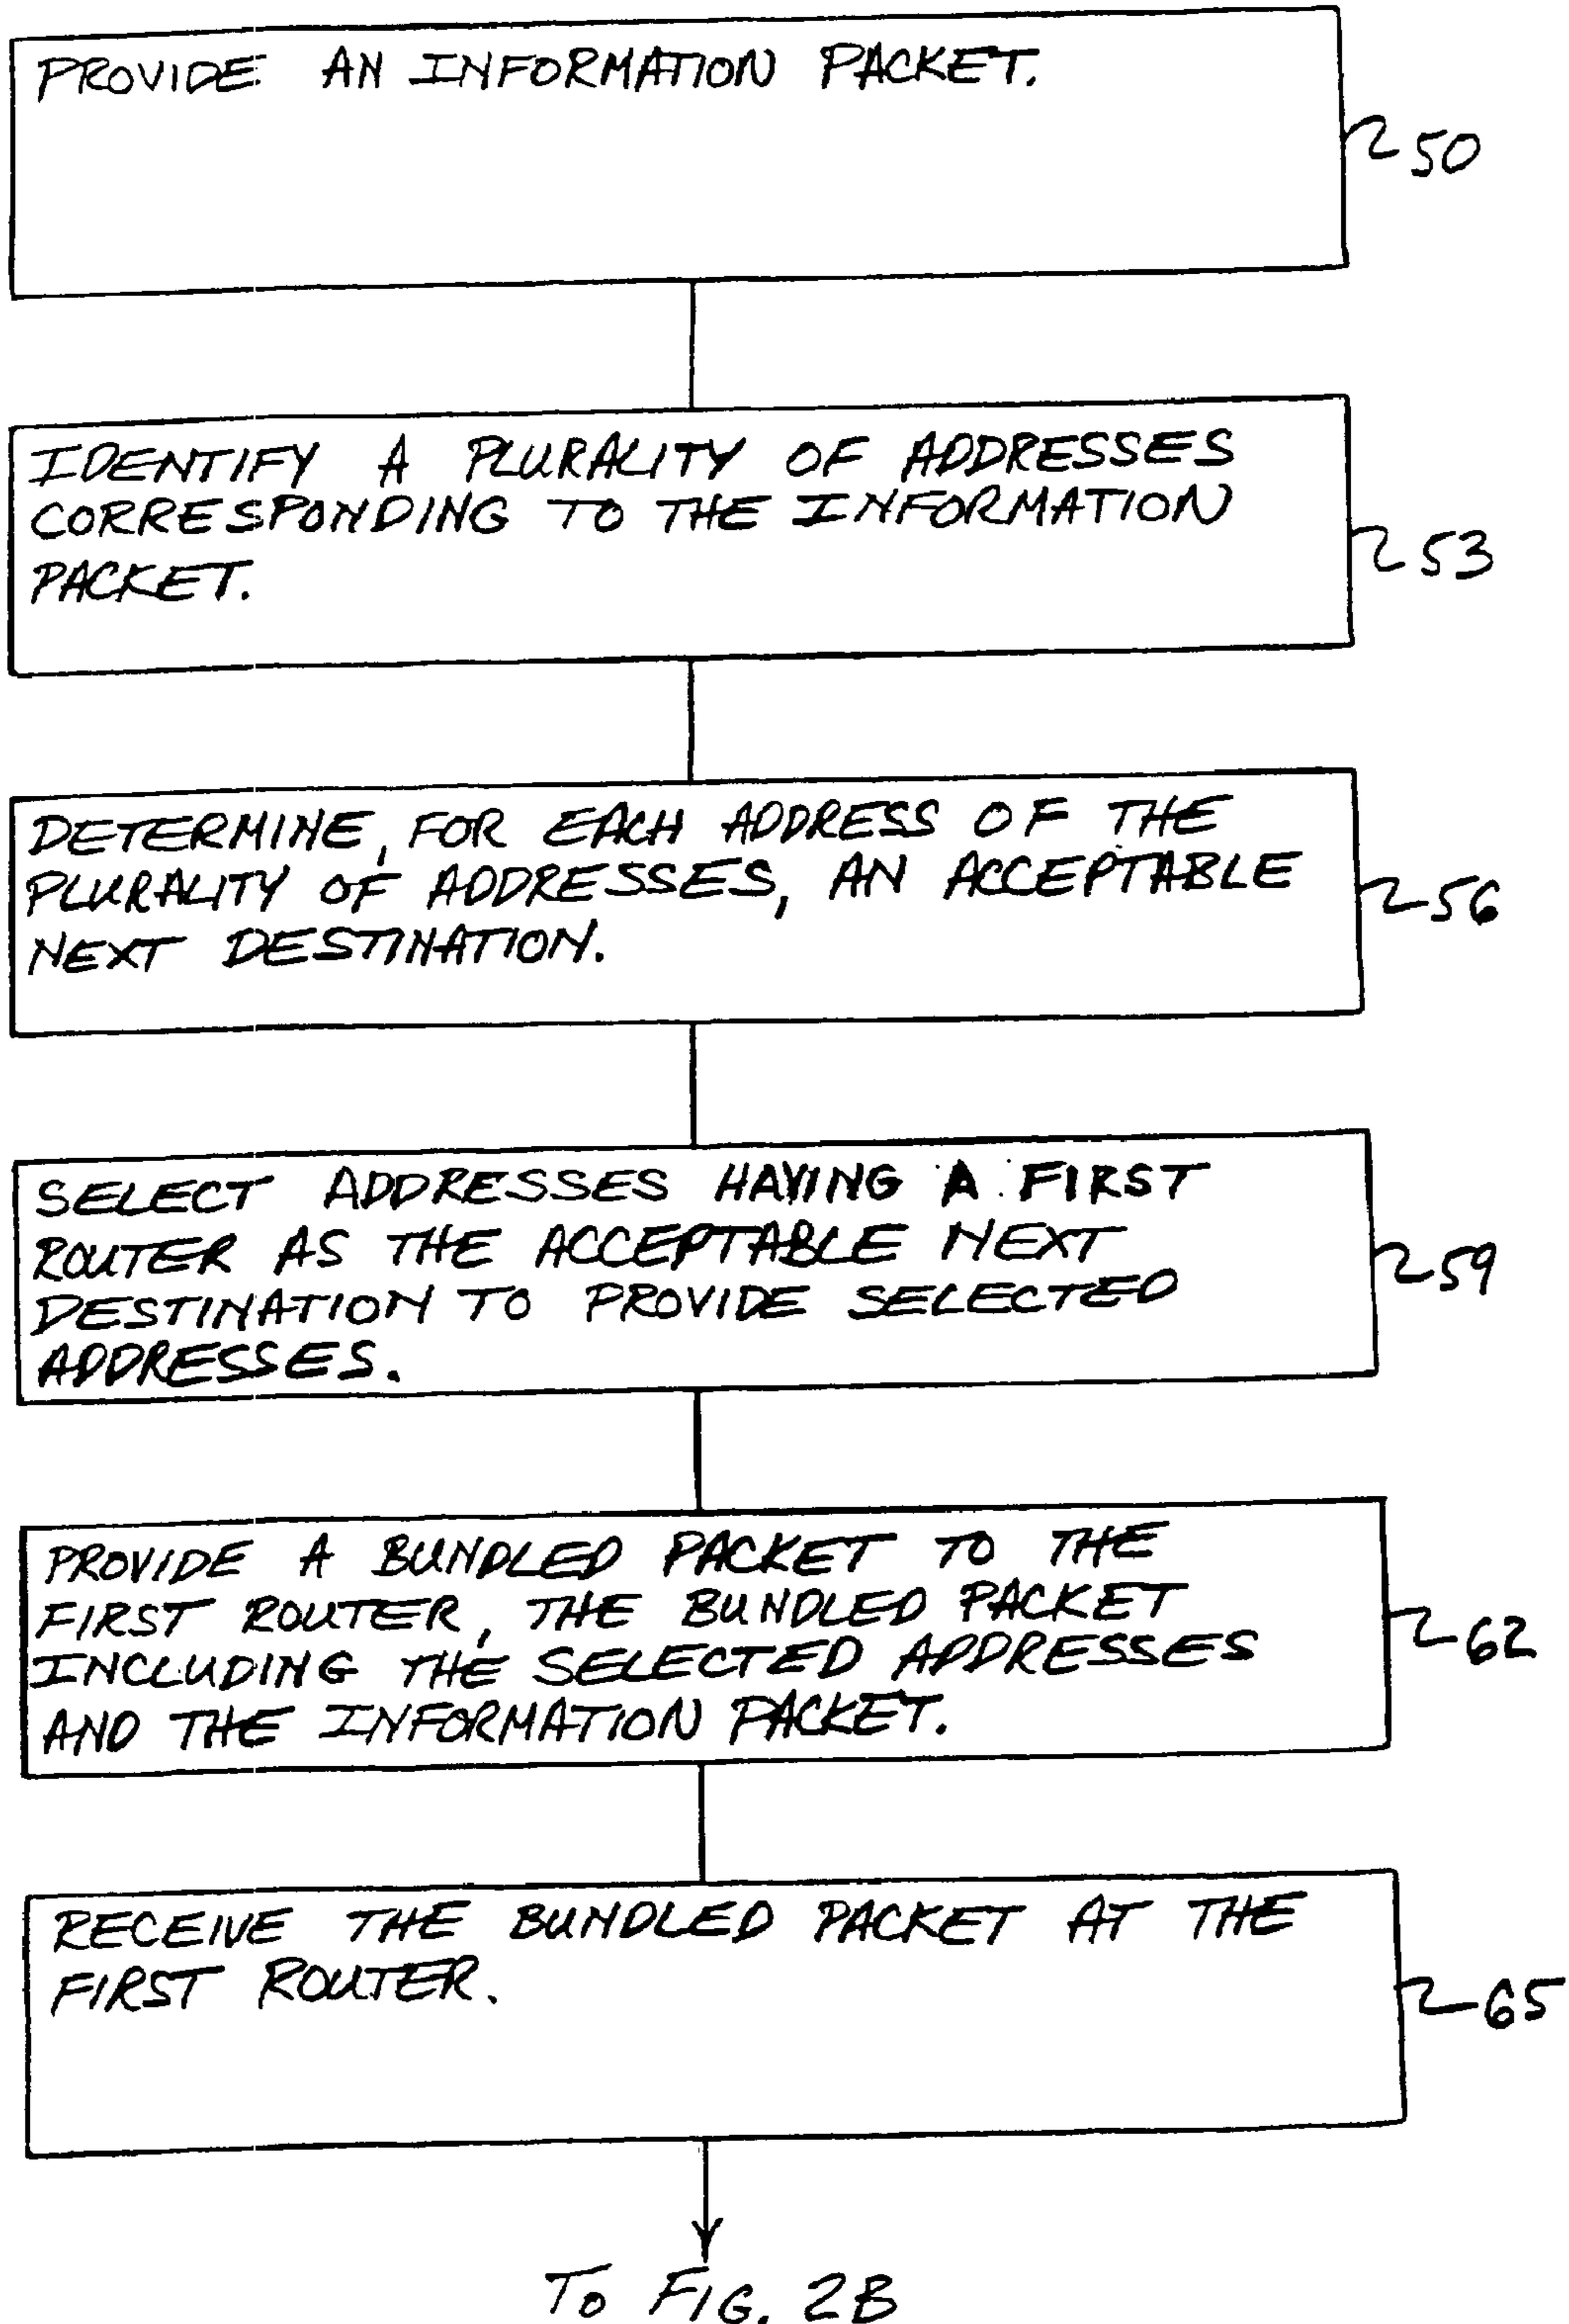 PROVIDE AN INFORMATION PACKET.
50
IDENTIFY A PLURALITY OF ADDRESSES
CORRESPONDING TO THE INFORMATION
PACKET.
53
DETERMINE, FOR EACH ADDRESS OF THE
PLURALITY OF ADDRESSES, AN ACCEPTABLE
NEXT DESTINATION.
56
SELECT ADDRESSES HAVING A FIRST
ROUTER AS THE ACCEPTABLE NEXT
DESTINATION TO PROVIDE SELECTED
ADDRESSES.
59
PROVIDE A BUNDLED PACKET TO THE
FIRST ROUTER, THE BUNDLED PACKET
INCLUDING THE SELECTED ADDRESSES
AND THE INFORMATION PACKET.
62
RECEIVE THE BUNDLED PACKET AT THE
FIRST ROUTER.
65
TO FIG. 2B